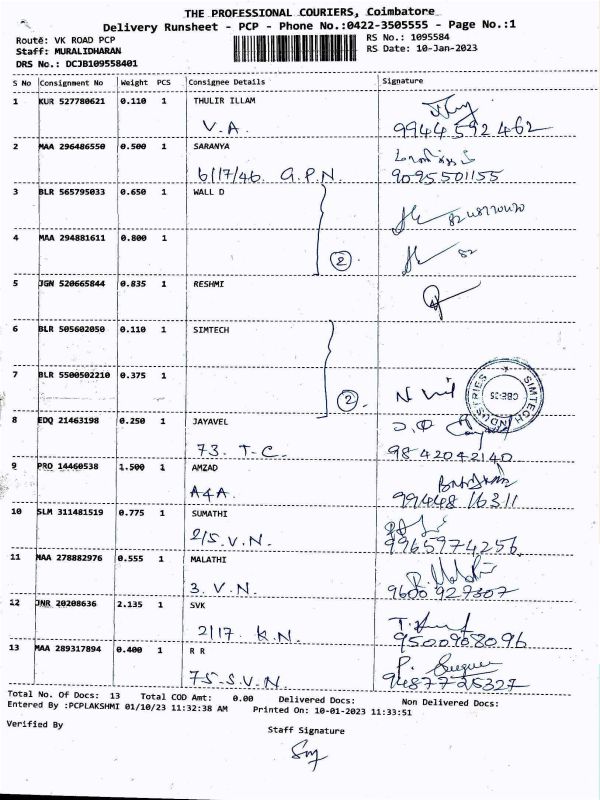 THE PROFESSIONAL COURIERS, Coimbatore
Delivery Runsheet - PCP - Phone No.:0422-3505555 - Page No.:1
Route: VK ROAD PCP
RS No.: 1095584
Staff: MURALIDHARAN
RS Date: 10-Jan-2023
DRS No.: DCJB109558401
S No Consignment No Weight PCS Consignee Details Signature
1 KUR 527780621 0.110 1 THULIR ILLAM
V.A. 9944592462
2 MAA 296486550 0.500 1 SARANYA
6/17/46. G.P.N. 9095501155
3 BLR 565795033 0.650 1 WALL D
4 MAA 294881611 0.800 1
2
5 JGN 520665844 0.835 1 RESHMI
6 BLR 505602050 0.110 1 SIMTECH
7 BLR 5500502210 0.375 1
2
SIMTECH INDUSTRIES
CBE-35
8 EDQ 21463198 0.250 1 JAYAVEL
73. T-C. 9842042140
9 PRO 14460538 1.500 1 AMZAD
A4A. 9944816311
10 SLM 311481519 0.775 1 SUMATHI
2/5.V.N. 9965974256
11 MAA 278882976 0.555 1 MALATHI
3. V.N. 9600929307
12 JNR 20208636 2.135 1 SVK
2/17. K.N. 9500908096
13 MAA 289317894 0.400 1 R R
75-S.V.N. 9487725327
Total No. Of Docs: 13 Total COD Amt: 0.00 Delivered Docs: Non Delivered Docs:
Entered By :PCPLAKSHMI 01/10/23 11:32:38 AM Printed On: 10-01-2023 11:33:51
Verified By
Staff Signature